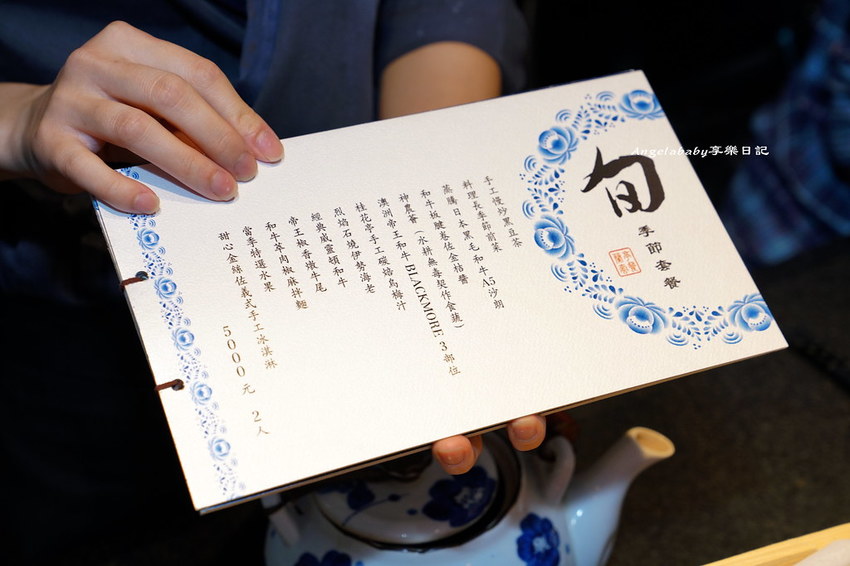 Angelababy享樂日記
旬
季節套餐
手工慢炒黑豆茶
料理長季節前菜
蒸騰日本黑毛和牛A5沙朗
和牛板腱卷佐金桔醬
神農薈（水耕無毒契作食蔬）
澳洲帝王和牛BLACKMORE 3部位
桂花亭手工碳焙烏梅汁
烈焰石燒伊勢海老
經典威靈頓和牛
帝王椒香燉牛尾
和牛萃肉椒麻拌麵
當季特選水果
甜心金絲佐義式手工冰淇淋
5000元 2人